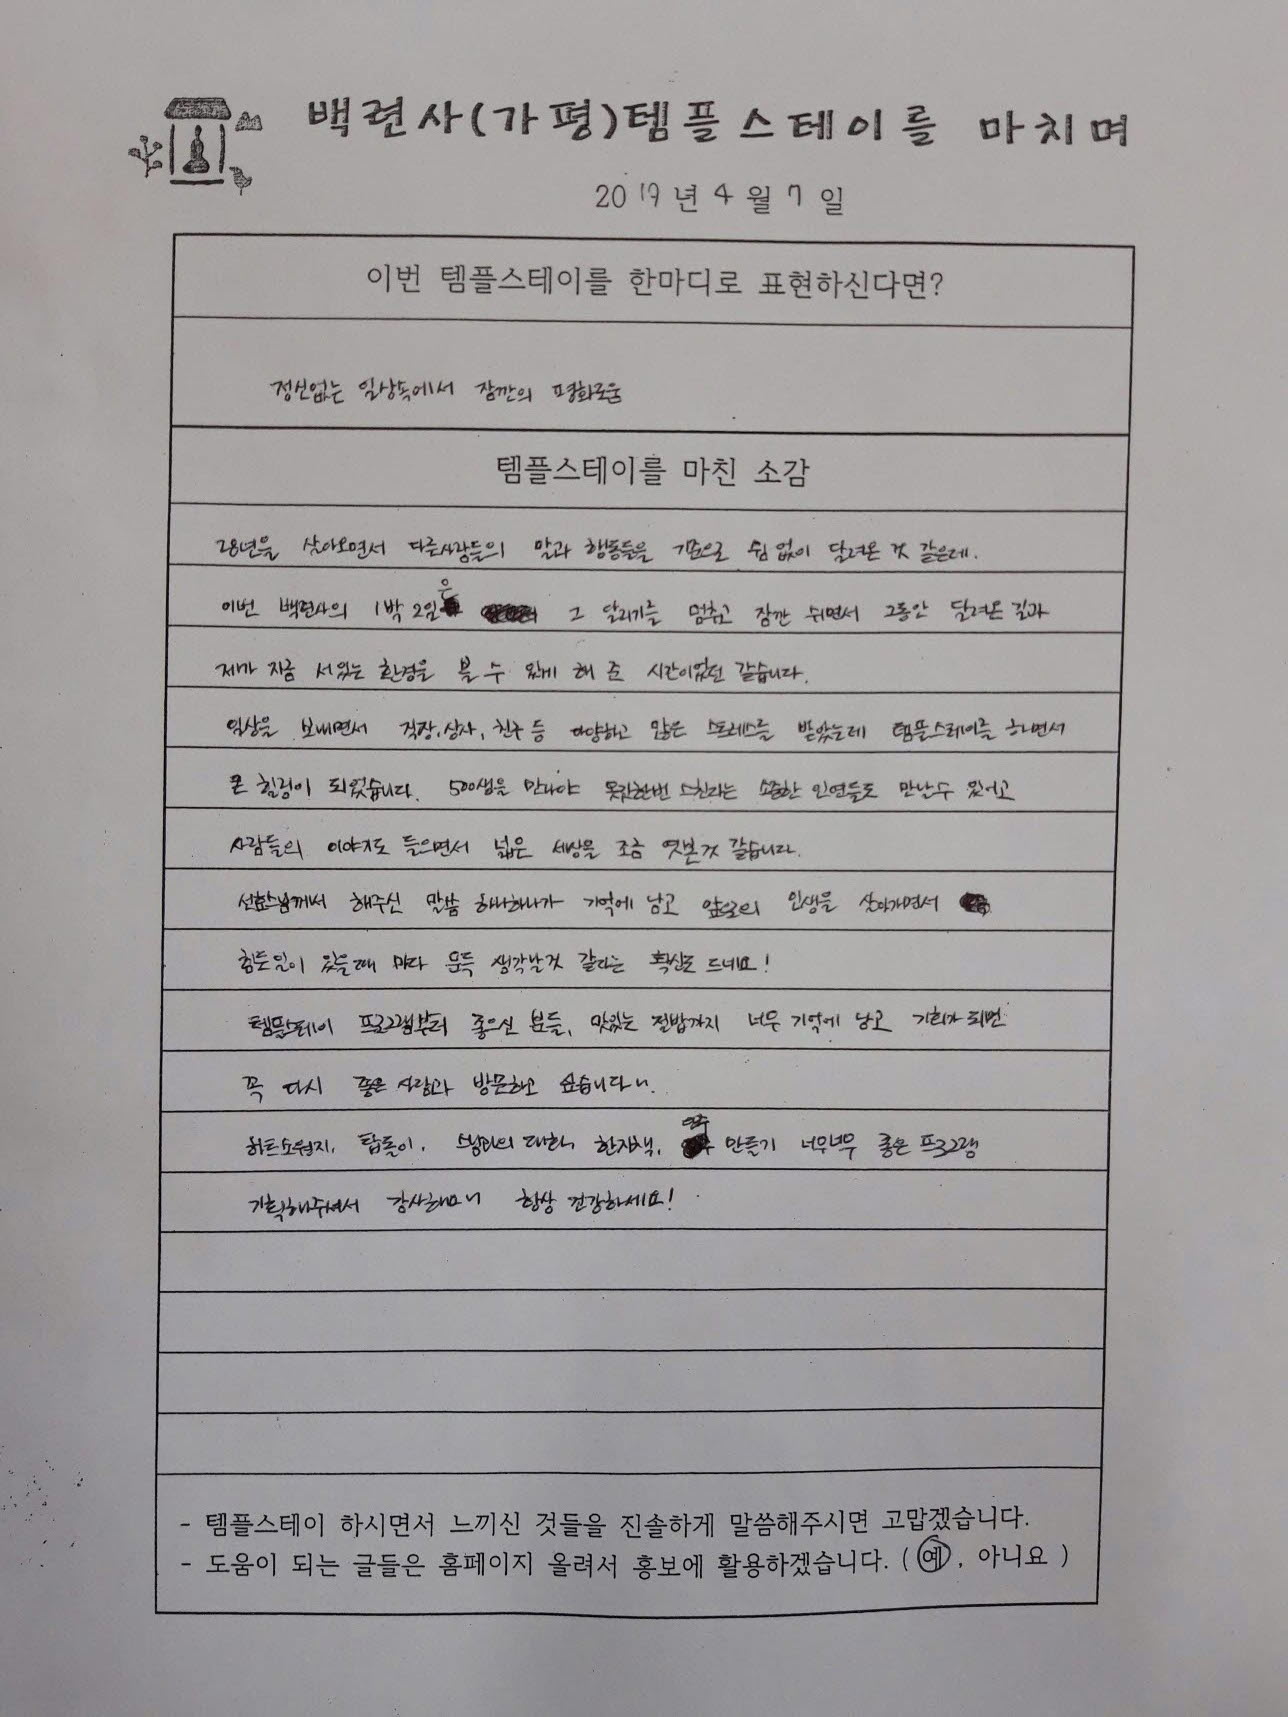 백련사(가평)템플스테이를 마치며
2019년 4월 7일
이번 템플스테이를 한마디로 표현하신다면?
정신없는 일상속에서 잠깐의 평화로움
템플스테이를 마친 소감
28년을 살아오면서 다른사람들의 말과 행동들을 기준으로 쉼 없이 달려온 것 같은데,
이번 백련사의 1박 2일은 그 달리기를 멈추고 잠깐 쉬면서 그동안 달려온 길과
제가 지금 서있는 환경을 볼 수 있게 해 준 시간이었던 같습니다.
일상을 보내면서 직장,상사, 친구 등 다양하고 많은 스트레스를 받았는데 템플스테이를 하면서
큰 힐링이 되었습니다. 500생을 만나야 옷깃한번 스친다는 소중한 인연들도 만난수 있어고
사람들의 이야기도 들으면서 넓은 세상을 조금 엿본것 같습니다.
해주신 말씀 하나하나가 기억에 남고 앞으로의 인생을 살아가면서
힘든일이 있을때 마다 문득 생각날것 같다는 확신도 드네요!
템플스테이 프로그램부터 좋으신 분들, 맛있는 절밥까지 너무 기억에 남고 기회가 되면
꼭 다시 좋은 사람과 방문하고 싶습니다.
하트소원지, 탑돌이, 스님과의 대화, 한지책, 염주 만들기 너무너무 좋은 프로그램
기획해주셔서 감사해요 항상 건강하세요!
- 템플스테이 하시면서 느끼신 것들을 진솔하게 말씀해주시면 고맙겠습니다.
- 도움이 되는 글들은 홈페이지 올려서 홍보에 활용하겠습니다. ( 예 , 아니요 )